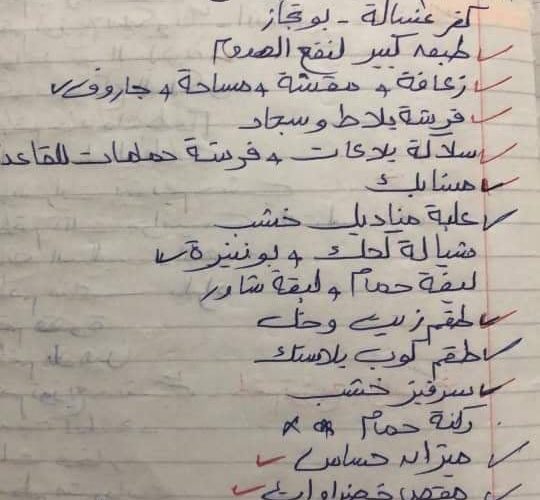 كفر غسالة - بوتجاز
طبق كبير لنقع الهدوم
زعافة + مقشة + مساحة + جاروف
فرشة بلاط وسجاد
سلاكة بلاعات + فرشة حمامات للقاعدة
مشابك
علبة مناديل خشب
شيالة كحك + بونبنيرة
ليفة حمام + ليفة شاور
طقم زيت وخل
طقم كوب بلاستك
سرفيز خشب
ركنة حمام
ميزان حساس
مقص خضراوات